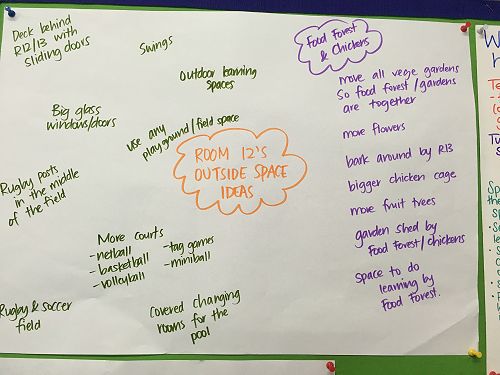 Deck behind
R12/13 with
sliding doors
Swings
Outdoor learning
spaces
Big glass
windows/doors
use any
playground/field space
ROOM 12'S
OUTSIDE SPACE
IDEAS
Rugby posts
in the middle
of the field
More courts
-netball
-basketball
-volleyball
-tag games
-miniball
Rugby & soccer
field
Covered changing
rooms for the
pool
Food Forest
& Chickens
move all vege gardens
so food forest/gardens
are together
more flowers
bark around by R13
bigger chicken cage
more fruit trees
garden shed by
Food Forest/chickens
space to do
learning by
Food Forest.